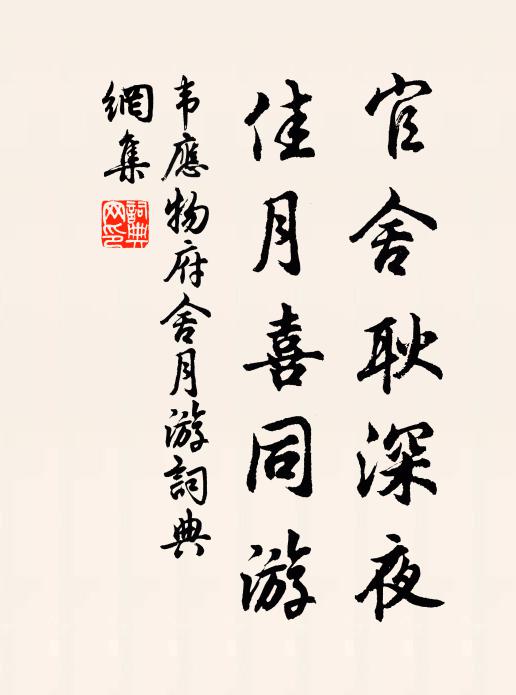 官舍耿深夜
佳月喜同游
韦應物府舍月游詞典
網集
詞典
网印